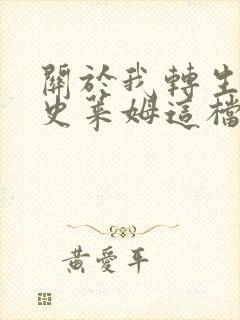 關於我轉生
史萊姆這檔
黃愛平